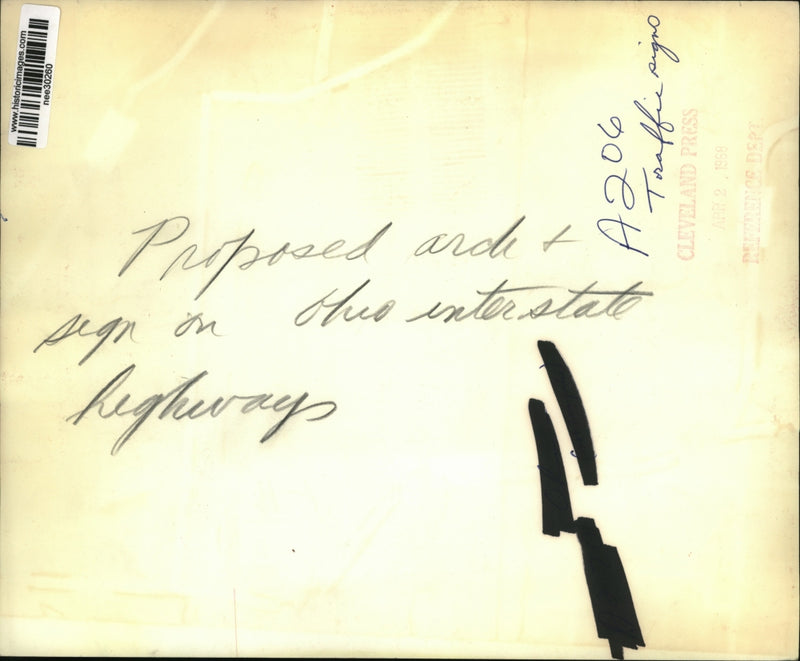 www.historicimages.com
nee30260
A206
Traffic signs
CLEVELAND PRESS
REFERENCE DEPT.
Proposed arch +
sign on Ohio interstate
highways